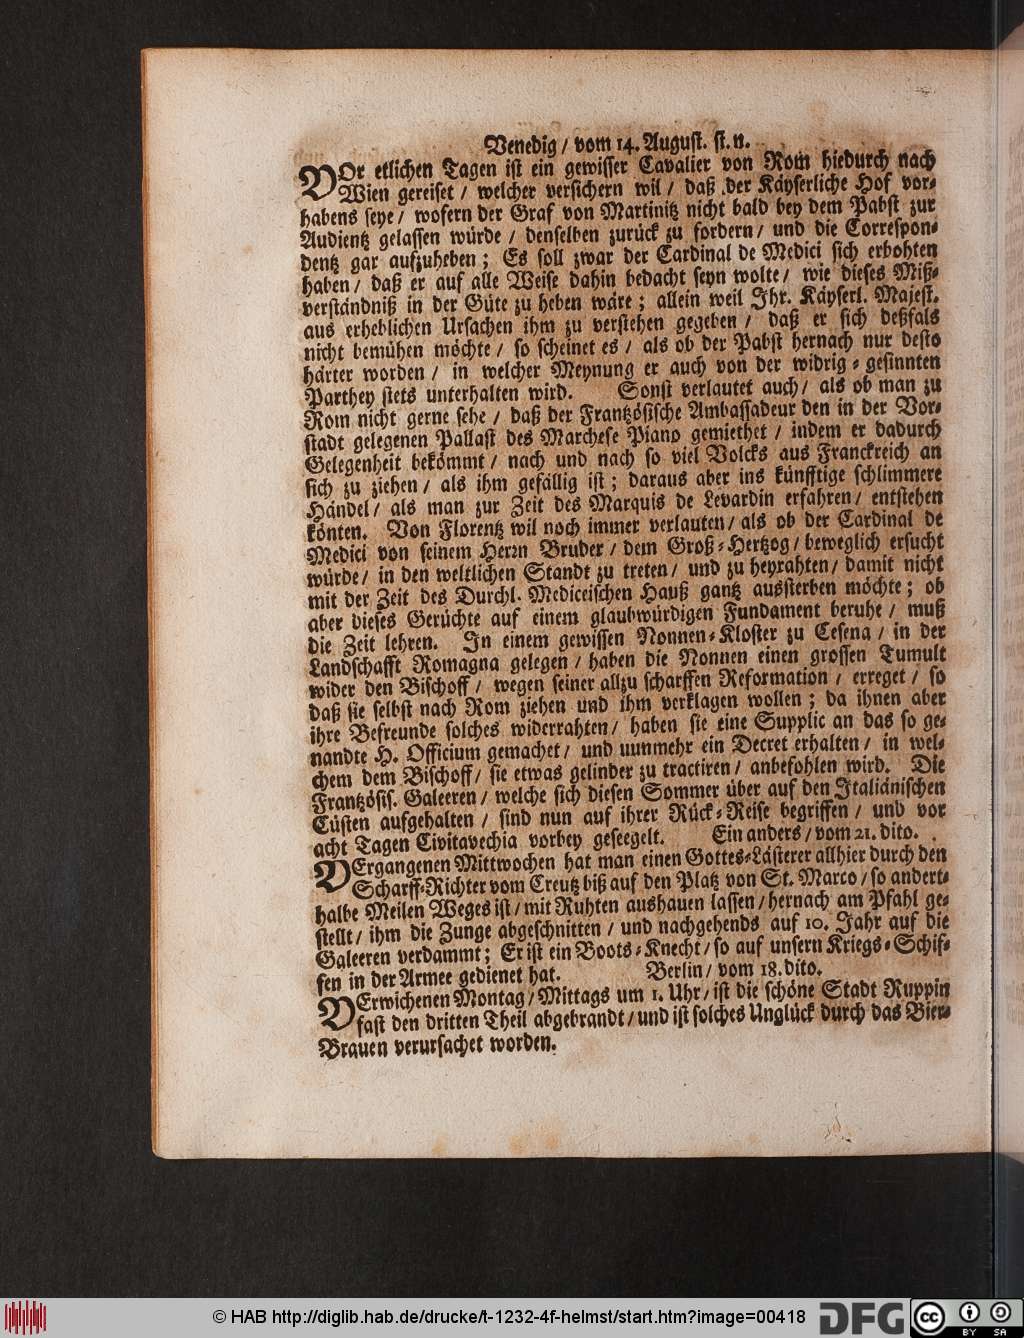 Venedig / vom 14. August. st. n.
VOr etlichen Tagen ist ein gewisser Cavalier von Rom hiedurch nach
Wien gereiset / welcher versichern wil / daß der Käyserliche Hof vor-
habens seye / wofern der Graf von Martinitz nicht bald bey dem Pabst zur
Audientz gelassen würde / denselben zurück zu fordern / und die Correspon-
dentz gar aufzuheben ; Es soll zwar der Cardinal de Medici sich erbohten
haben / daß er auf alle Weise dahin bedacht seyn wolte / wie dieses Miß-
verständniß in der Güte zu heben wäre ; allein weil Ihr. Käyserl. Majest.
aus erheblichen Ursachen ihm zu verstehen gegeben / daß er sich deßfals
nicht bemühen möchte / so scheinet es / als ob der Pabst hernach nur desto
härter worden / in welcher Meynung er auch von der widrig-gesinnten
Parthey stets unterhalten wird. Sonst verlautet auch / als ob man zu
Rom nicht gerne sehe / daß der Frantzösische Ambassadeur den in der Vor-
stadt gelegenen Pallast des Marchese Piano gemiethet / indem er dadurch
Gelegenheit bekömmt / nach und nach so viel Volcks aus Franckreich an
sich zu ziehen / als ihm gefällig ist ; daraus aber ins künfftige schlimmere
Händel / als man zur Zeit des Marquis de Levardin erfahren / entstehen
könten. Von Florentz wil noch immer verlauten / als ob der Cardinal de
Medici von seinem Herrn Bruder / dem Groß-Hertzog / beweglich ersucht
würde / in den weltlichen Standt zu treten / und zu heyrahten / damit nicht
mit der Zeit des Durchl. Mediceischen Hauß gantz aussterben möchte ; ob
aber dieses Gerüchte auf einem glaubwürdigen Fundament beruhe / muß
die Zeit lehren. In einem gewissen Nonnen-Kloster zu Cesena / in der
Landschafft Romagna gelegen / haben die Nonnen einen grossen Tumult
wider den Bischoff / wegen seiner allzu scharffen Reformation / erreget / so
daß sie selbst nach Rom ziehen und ihm verklagen wollen ; da ihnen aber
ihre Befreunde solches widerrahten / haben sie eine Supplic an das so ge-
nandte H. Officium gemachet / und uunmehr ein Decret erhalten / in wel-
chem dem Bischoff / sie etwas gelinder zu tractiren / anbefohlen wird. Die
Frantzösis. Galeeren / welche sich diesen Sommer über auf den Italiänischen
Cüsten aufgehalten / sind nun auf ihrer Rück-Reise begriffen / und vor
acht Tagen Civitavechia vorbey geseegelt. Ein anders / vom 21. dito.
VErgangenen Mittwochen hat man einen Gottes-Lästerer allhier durch den
Scharff-Richter vom Creutz biß auf den Platz von St. Marco / so andert-
halbe Meilen Weges ist / mit Ruhten aushauen lassen / hernach am Pfahl ge-
stellt / ihm die Zunge abgeschnitten / und nachgehends auf 10. Jahr auf die
Galeeren verdammt ; Er ist ein Boots-Knecht / so auf unsern Kriegs-Schif-
fen in der Armee gedienet hat. Berlin / vom 18. dito.
VErwichenen Montag / Mittags um 1. Uhr / ist die schöne Stadt Ruppin
fast den dritten Theil abgebrandt / und ist solches Unglück durch das Bier-
Brauen verursachet worden.
© HAB http://diglib.hab.de/drucke/t-1232-4f-helmst/start.htm?image=00418
DFG
cc BY SA